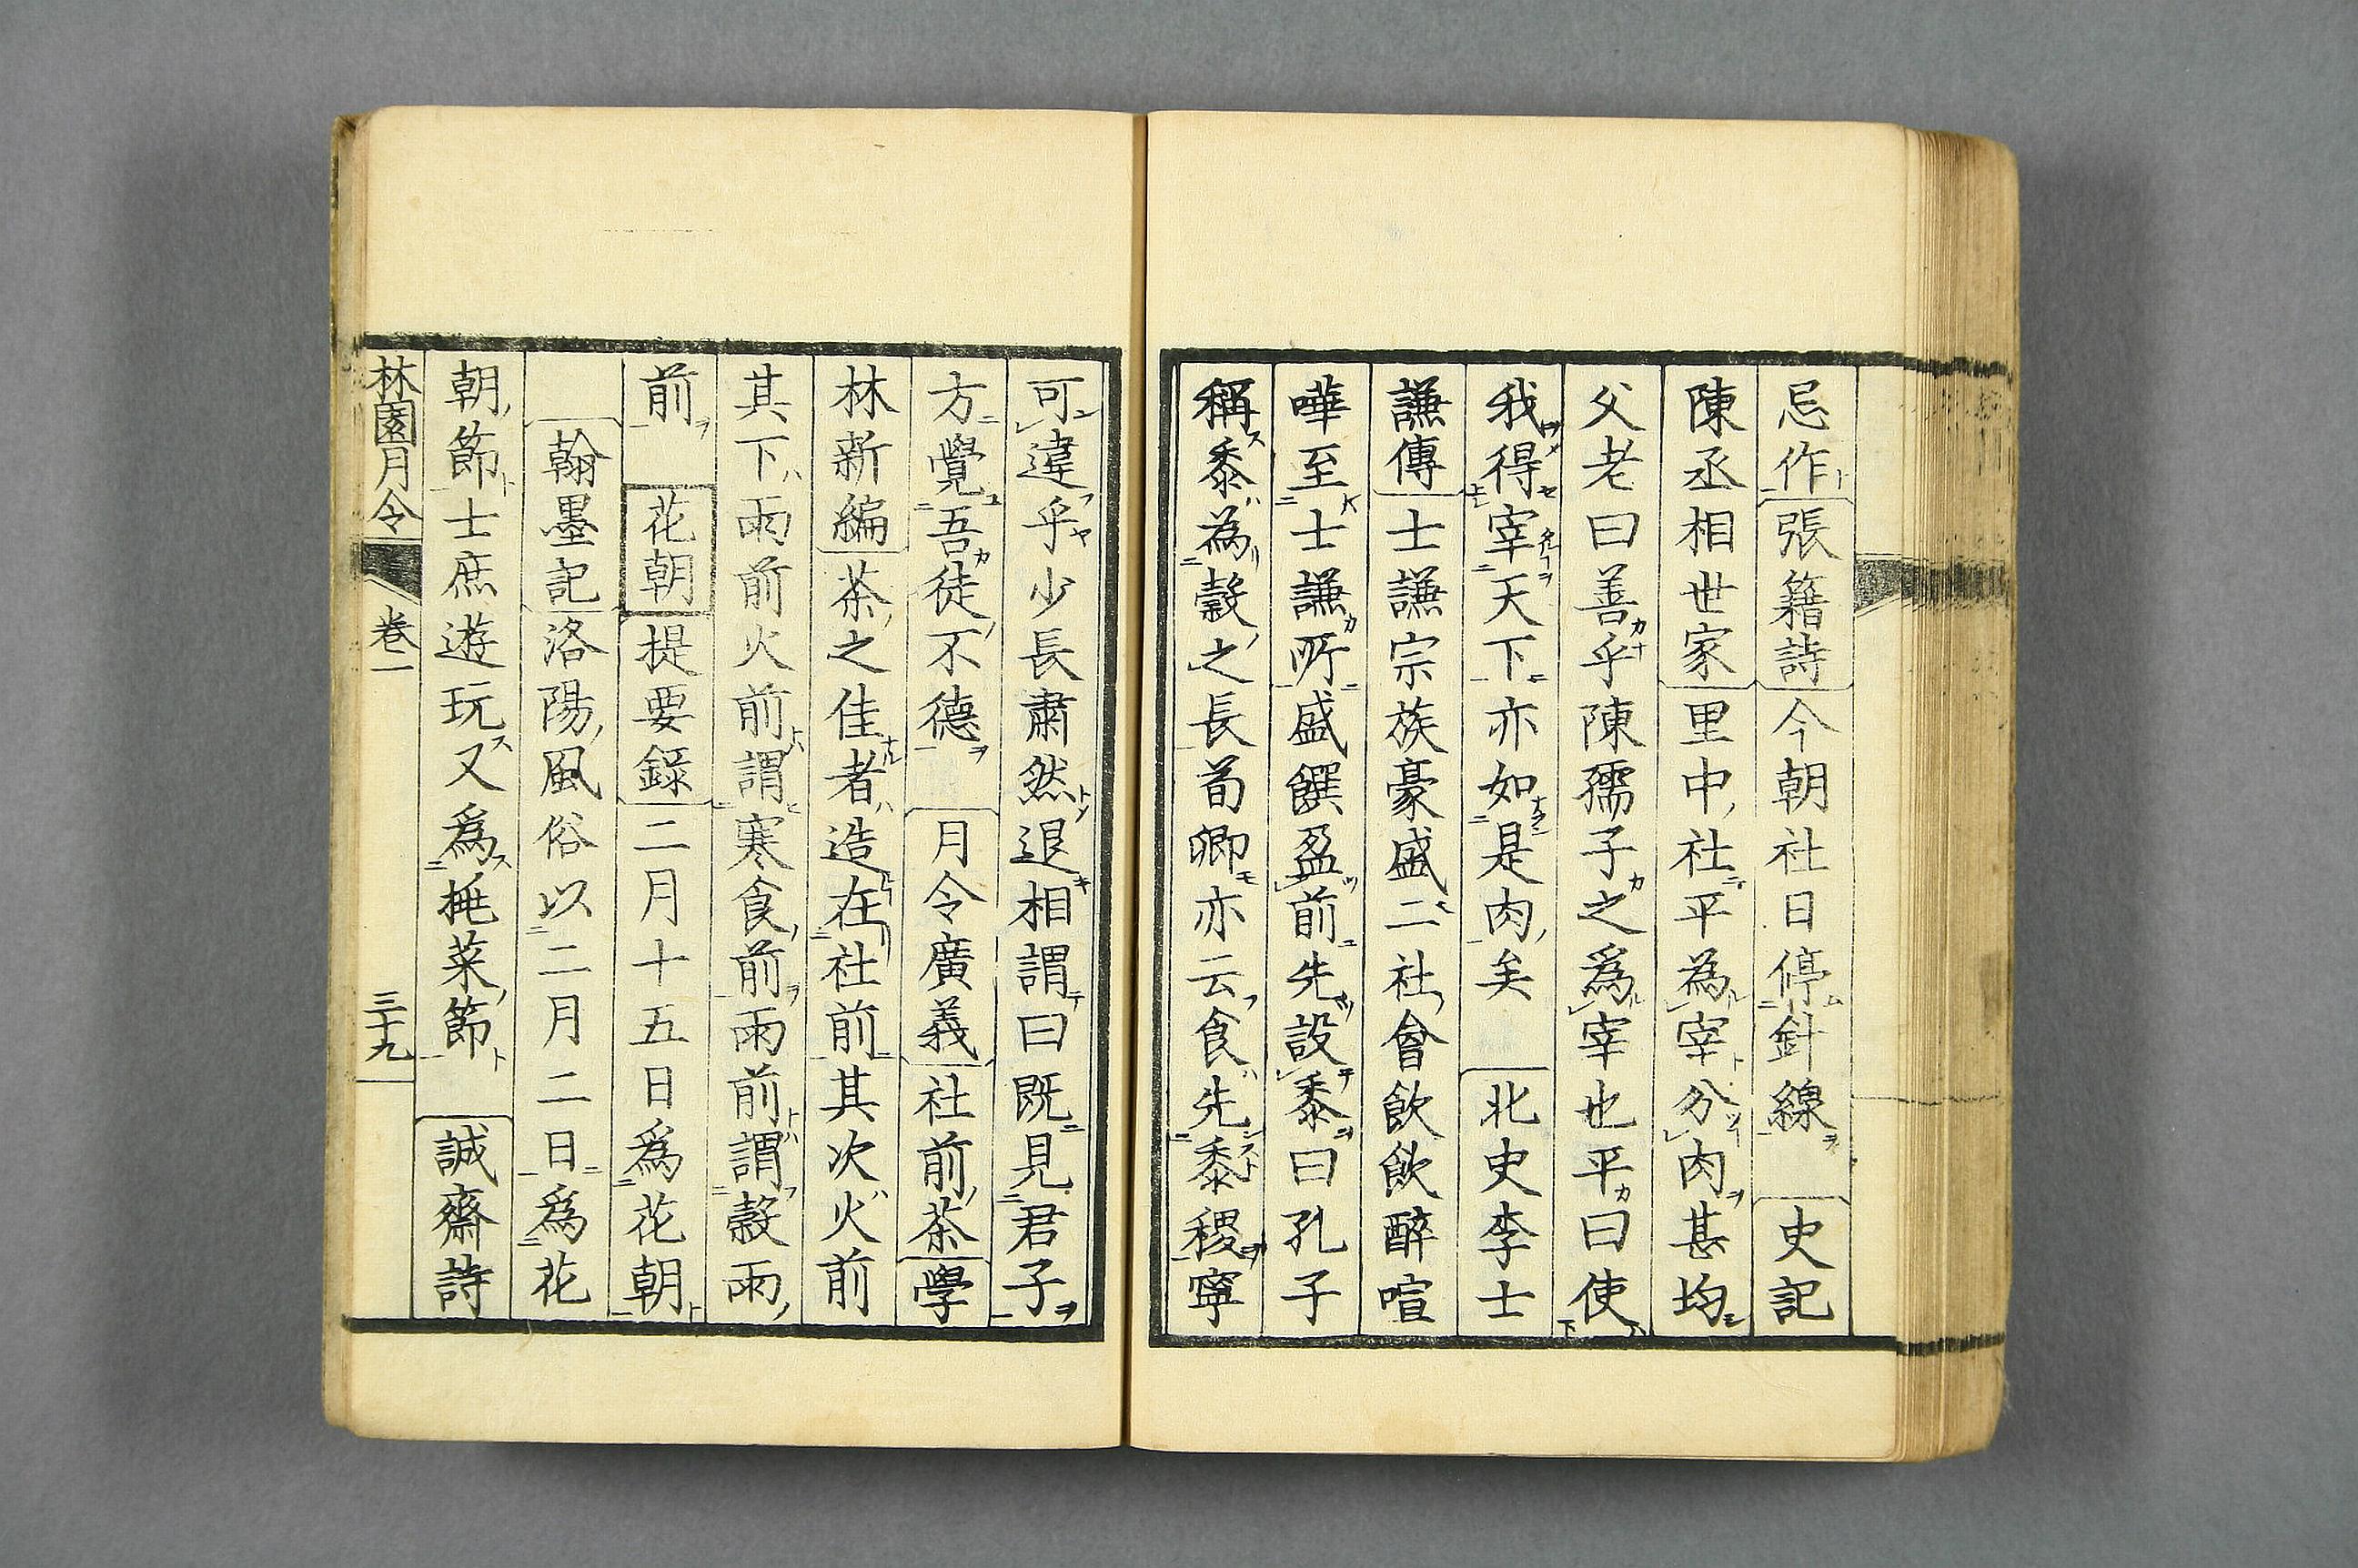 忌作張籍詩今朝社日停針線史記
陳丞相世家里中社平為宰分肉甚均
父老曰善乎陳孺子之爲宰也平曰使
我得宰天下亦如是肉矣北史李士
謙傳士謙宗族豪盛二社會飲飲醉喧
嘩至士謙所盛饌盈前先設黍曰孔子
稱黍為穀之長荀卿亦云食先黍稷寧
可違乎少長肅然退相謂曰既見君子
方覺吾徒不德月令廣義社前茶學
林新編茶之佳者造在社前其次火前
其下雨前火前謂寒食前雨前謂穀雨
前花朝提要錄二月十五日爲花朝
翰墨記洛陽風俗以二月二日爲花
朝節士庶遊玩又爲挑菜節誠齋詩
林園月令 卷一 三十九